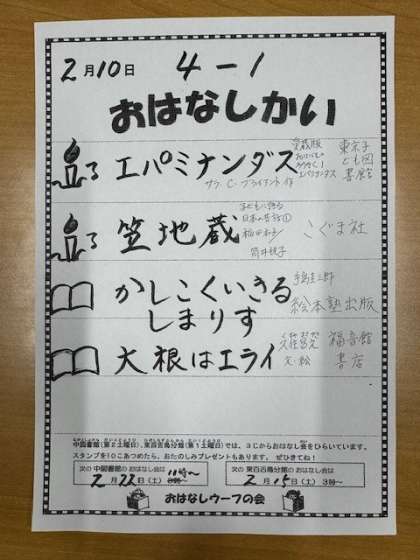 2月10日 4-1
おはなしかい
エパミナンダス
愛蔵版
おはなしの
ろうそく1
エパミナンダス
東京子
ども図
書館
サラ・C・ブライアント 作
笠地蔵
子どもに語る
日本の昔話①
稲田和子/
筒井悦子
こぐま社
かしこくいきる
しまりす
手島圭三郎
絵本塾出版
大根はエライ
久住昌之
文・絵
福音館
書店
中図書館(第2土曜日)、東百舌鳥分館(第1土曜日)では、3じからおはなし会をひらいています。
スタンプを10こあつめたら、おたのしみプレゼントもあります。 ぜひきてね!
次の 中図書館の おはなし会は
11時~
2月22日(土) 3時~
次の 東百舌鳥分館の おはなし会は
2月15日(土) 3時~
おはなしウーフの会